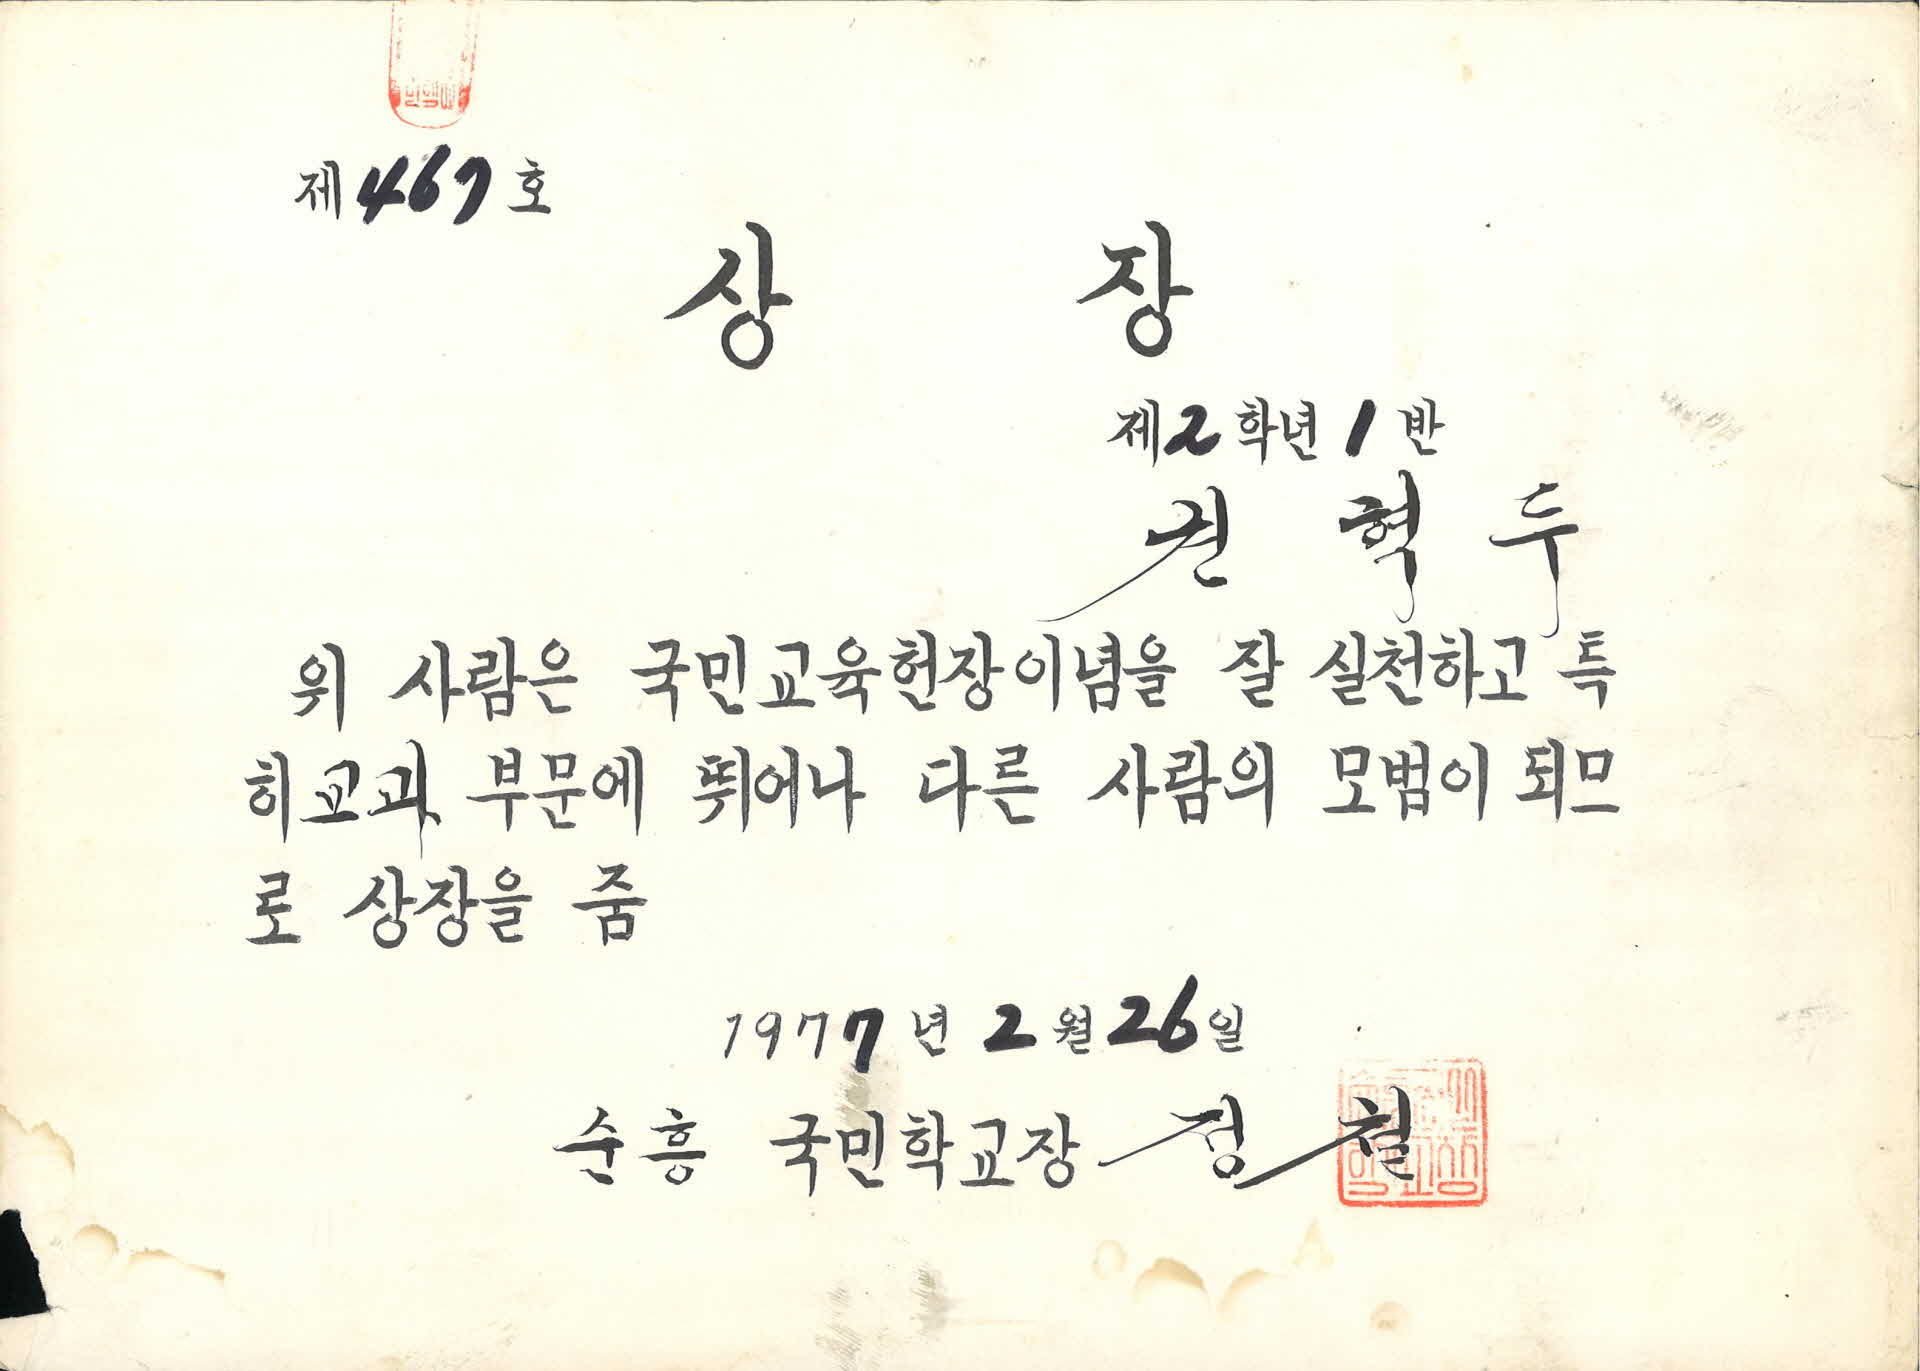 제467호
상 장
제2학년 1반
권 혁 두
위 사람은 국민교육헌장이념을 잘 실천하고 특
히교과 부문에 뛰어나 다른 사람의 모범이 되므
로 상장을 줌
1977년 2월 26일
순흥 국민학교장 정 철